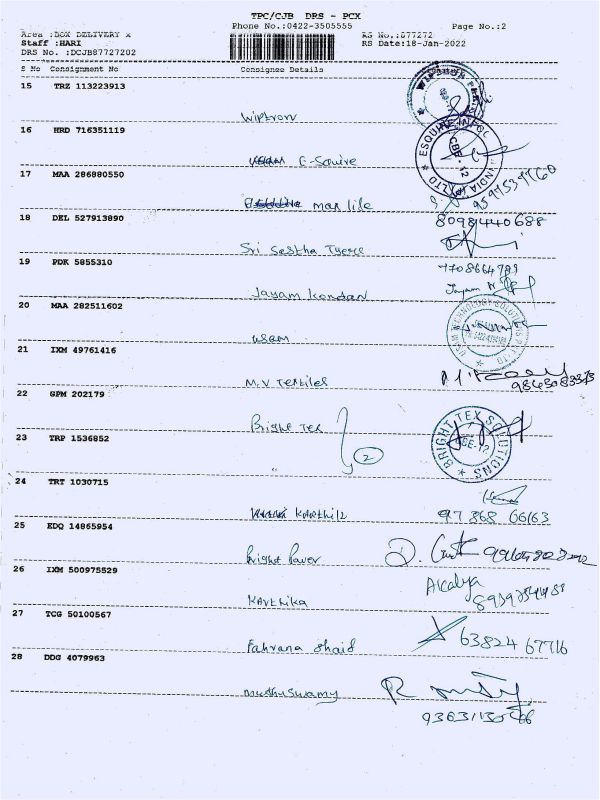 TPC/CJB DRS - PCX
Phone No.:0422-3505555 Page No.:2
Area :BOX DELIVERY x RS No.:877272
Staff :HARI RS Date:18-Jan-2022
DRS No. :DCJB87727202
S No Consignment No Consignee Details
15 TRZ 113223913
Wiptron
16 HRD 716351119
E-Squire
ESQUIRE INDIA LTD CBE-12
17 MAA 286880550
max life
18 DEL 527913890
8098440688
Sri Sastha
19 PDK 5855310
Jayam Kondan
Jayam
20 MAA 282511602
usam
21 IXM 49761416
M.V Textiles
22 GPM 202179
Bright Tex
BRIGHT TEX SOLUTIONS CBE-12
23 TRP 1536852
2
"
24 TRT 1030715
Karthik
97868 66163
25 EDQ 14865954
Bright Paver
26 IXM 500975529
Karthika
27 TCG 50100567
63824 67716
Fahrana Shaid
28 DDG 4079963
Muthuswamy